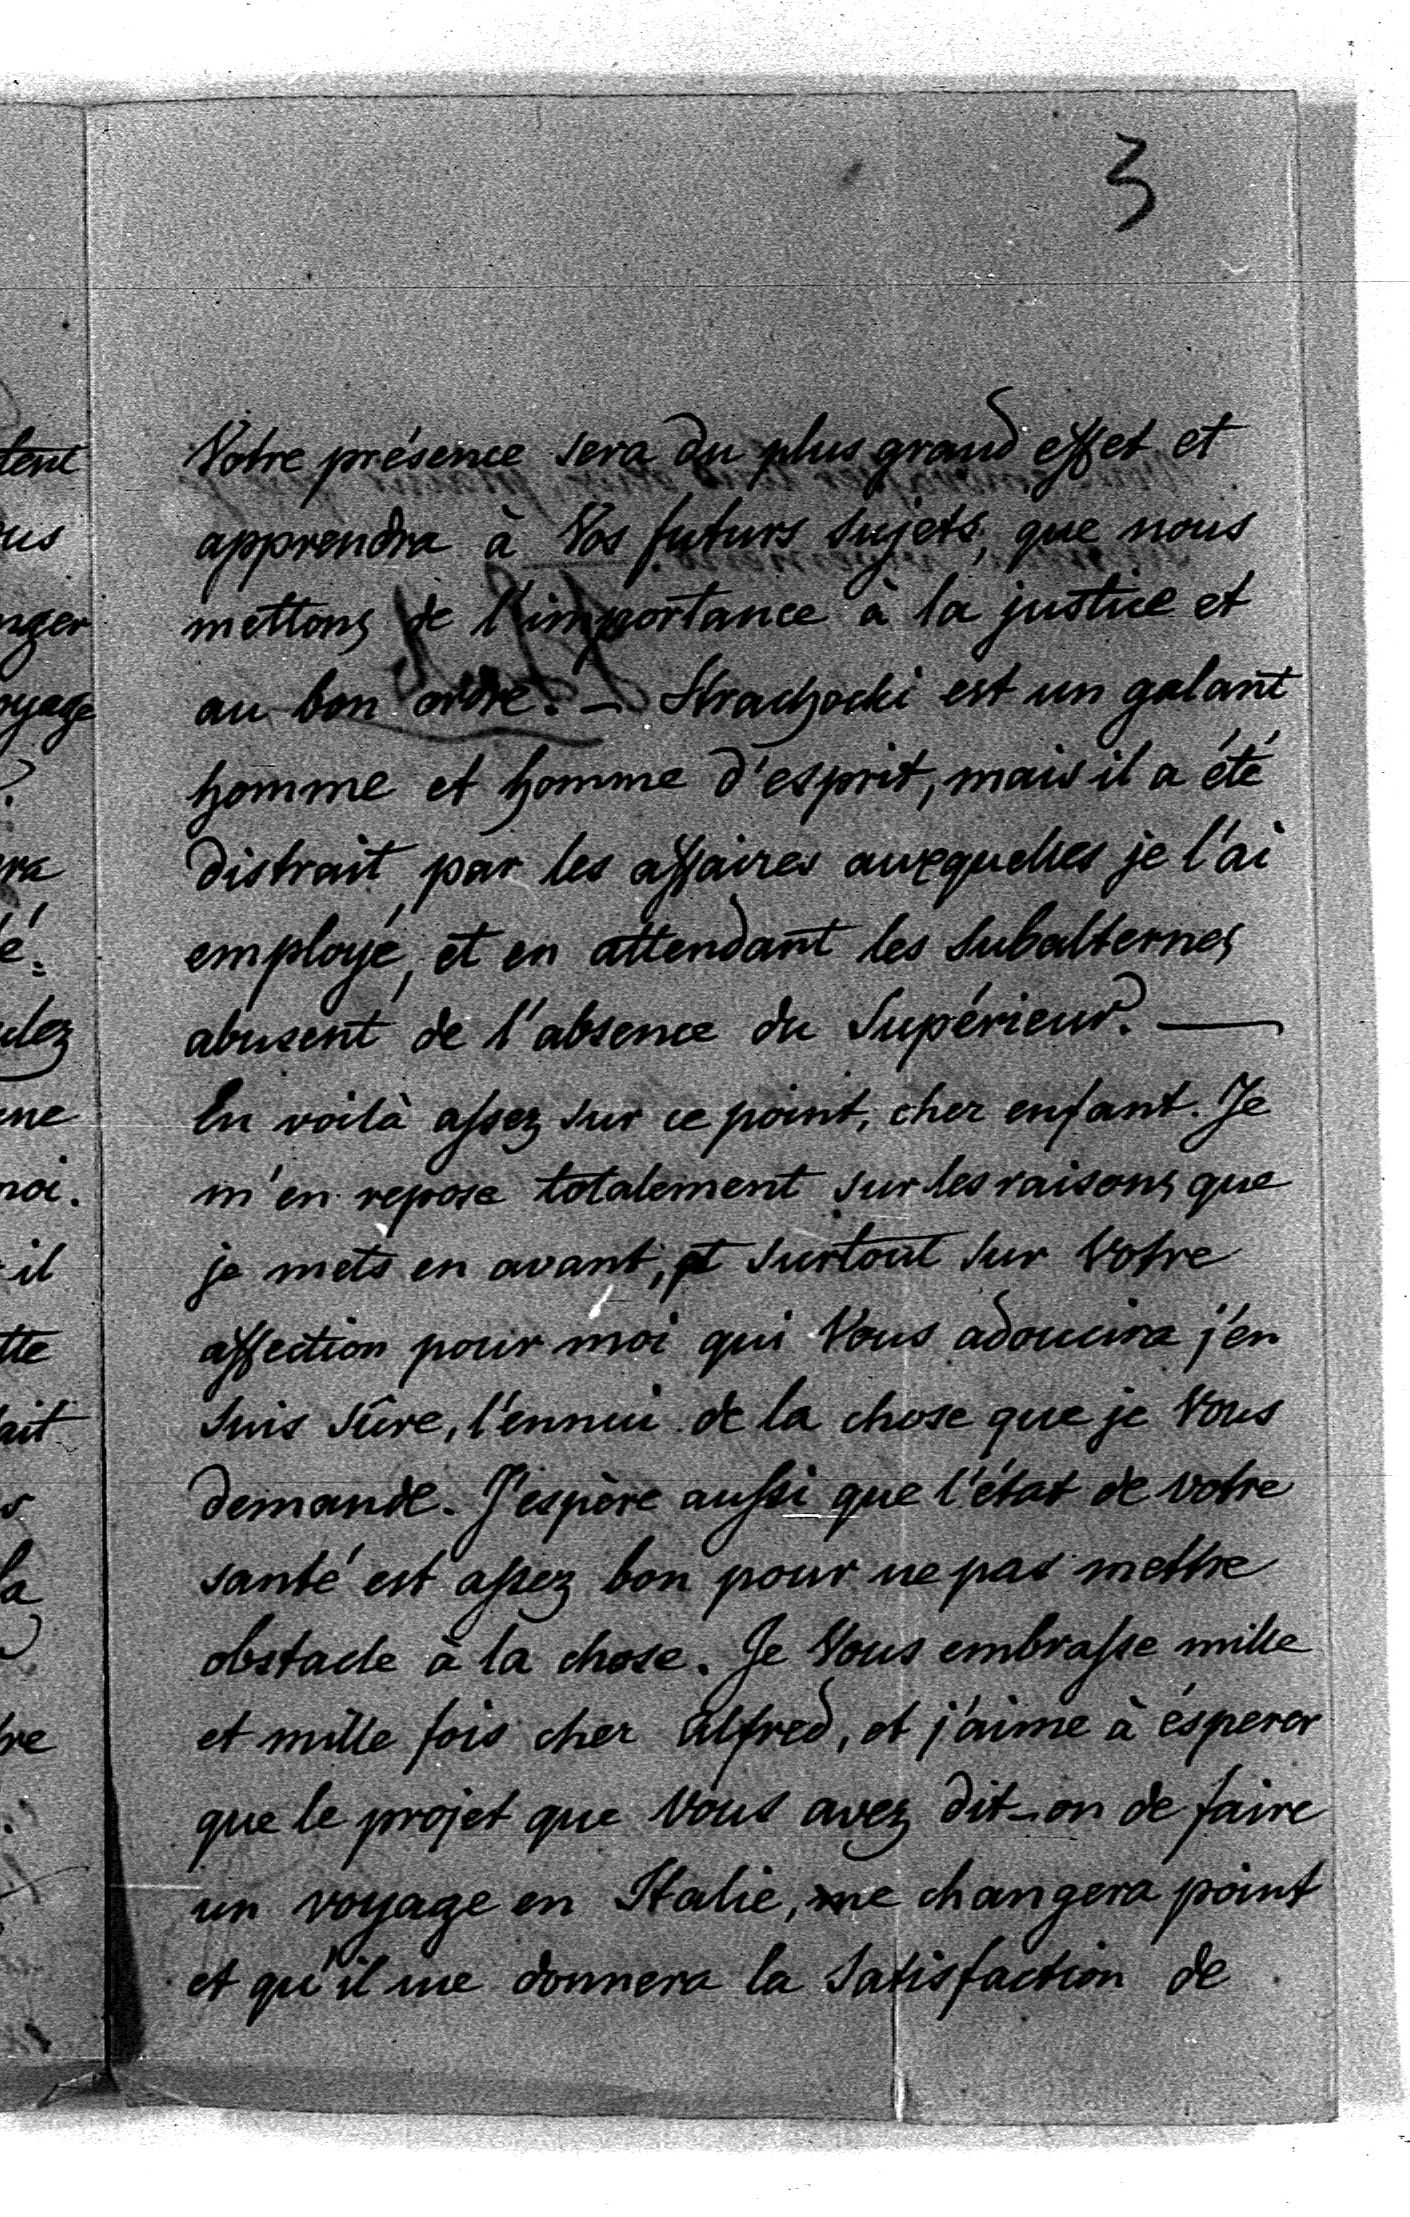 3
Votre présence sera du plus grand effet et
apprendra à Vos futurs sujets, que nous
mettons de l'importance à la justice et
au bon ordre. — Strachocki est un galant
homme et homme d'esprit, mais il a été
distrait par les affaires auxquelles je l'ai
employé, et en attendant les subalternes
abusent de l'absence du Supérieur. —
En voilà assez sur ce point, cher enfant. Je
m'en repose totalement sur les raisons que
je mets en avant, et surtout sur Votre
affection pour moi qui Vous adoucira j'en
suis sûre, l'ennui de la chose que je Vous
demande. J'espère aussi que l'état de votre
santé est assez bon pour ne pas mettre
obstacle à la chose. Je Vous embrasse mille
et mille fois cher Alfred, et j'aime à ésperer
que le projet que Vous avez dit-on de faire
un voyage en Italie, ne changera point
et qu'il me donnera la satisfaction de